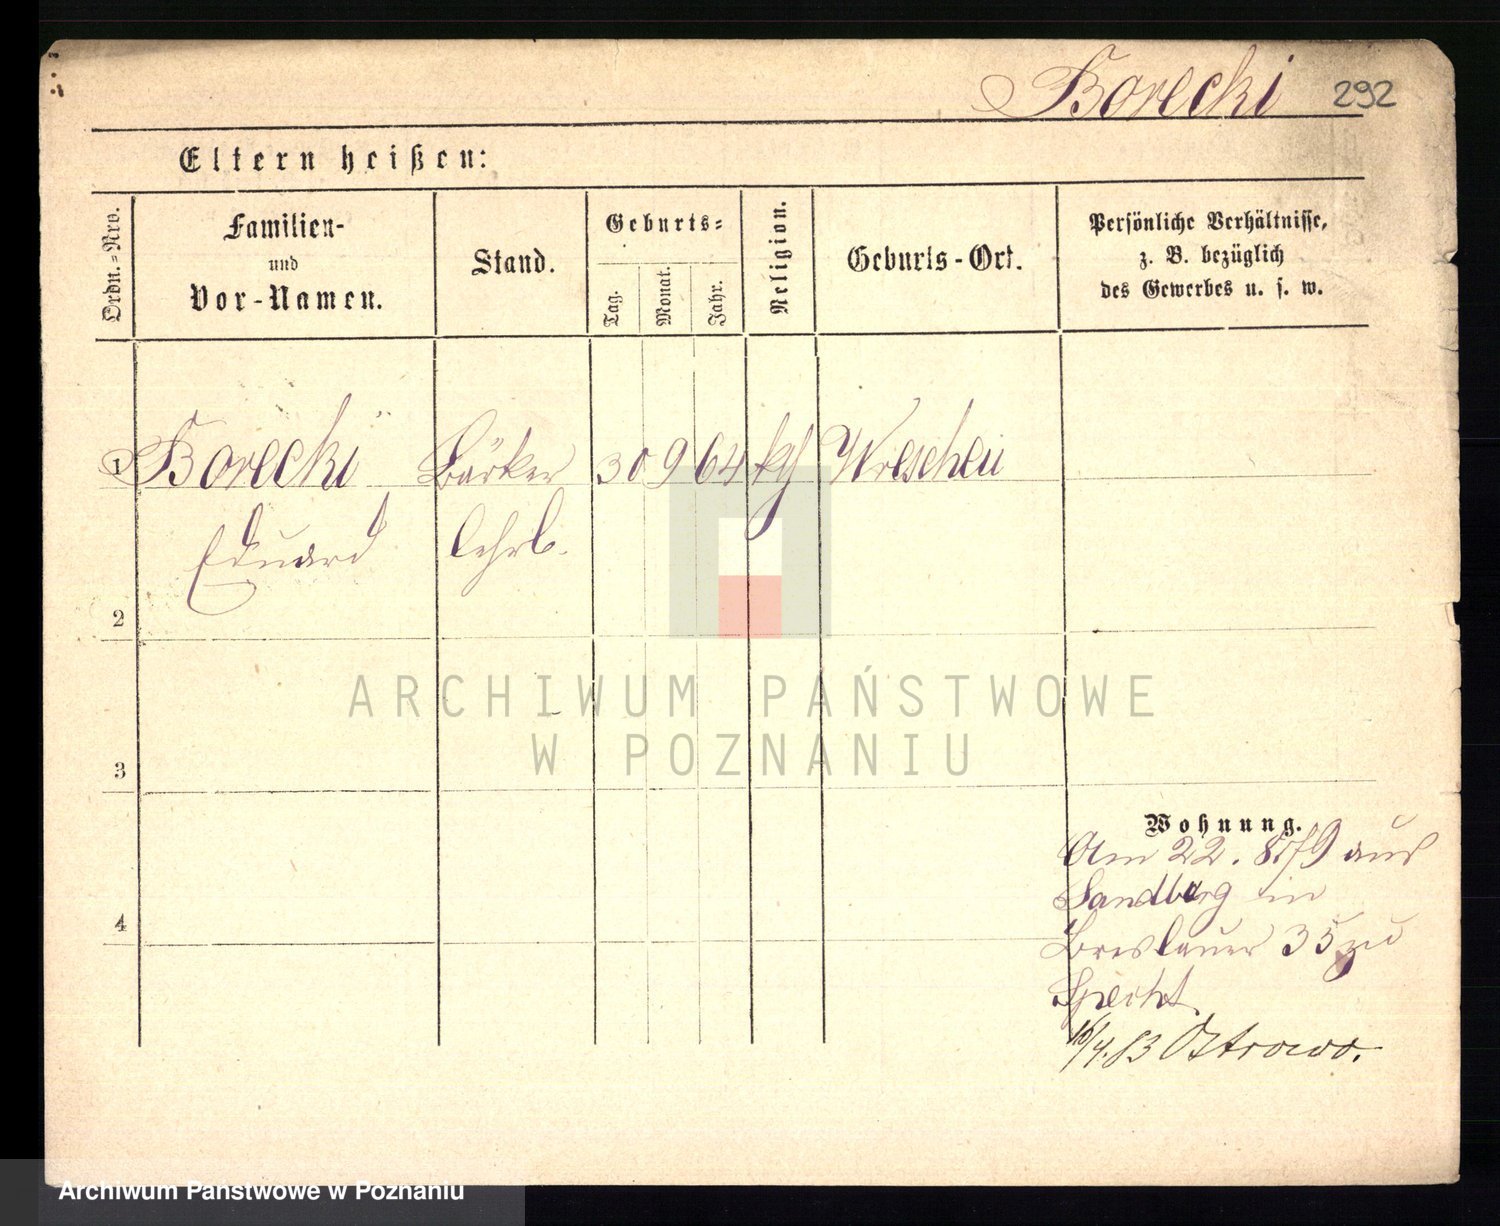 Borecki 292
Eltern heißen:
Ordn.=Nro.
Familien-
und
Vor-Namen.
Stand.
Geburts=
Tag.
Monat.
Jahr.
Religion.
Geburts-Ort.
Persönliche Verhältnisse,
z. B. bezüglich
des Gewerbes u. s. w.
1 Borecki Bäcker 30 9 64 kth Wreschen
Eduard lehrl.
2
3
4
Wohnung.
Am 22. 8.79 aus
Sandberg in
Breslauer 35 zu
Specht
16/4. 83 Ostrowo.
ARCHIWUM PAŃSTWOWE
W POZNANIU
Archiwum Państwowe w Poznaniu